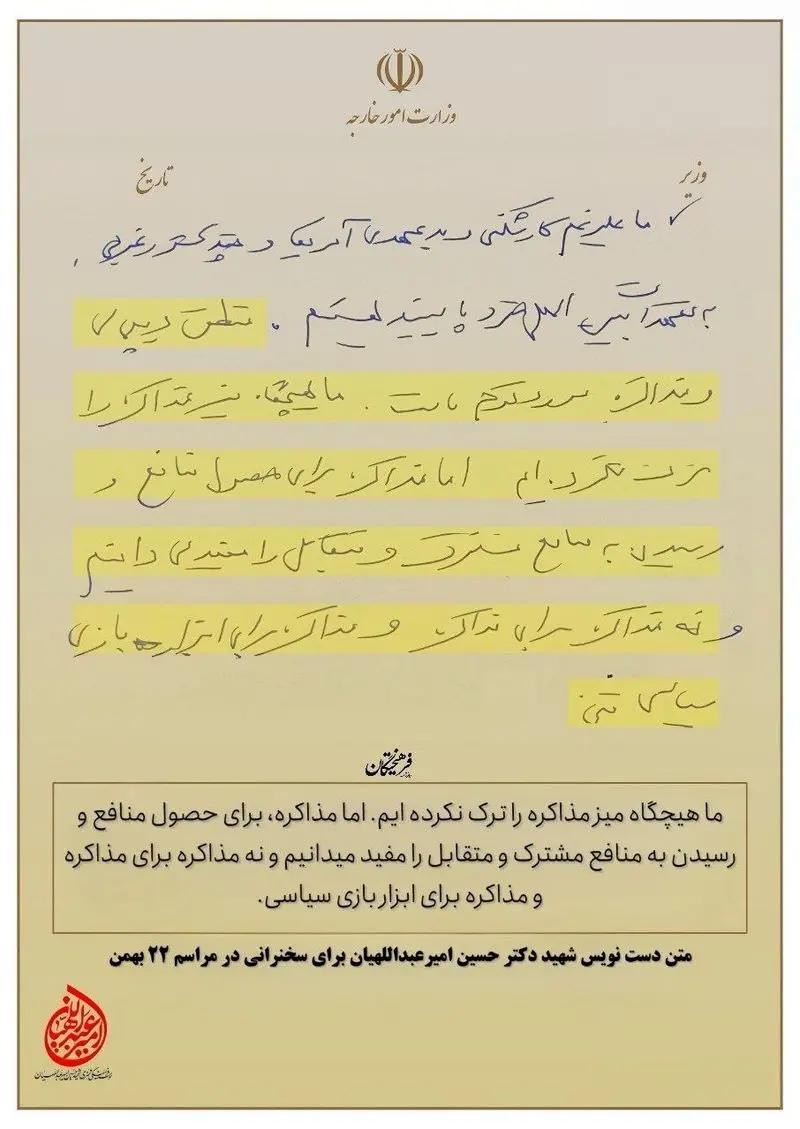 وزارت امور خارجه
وزیر
تاریخ
ما علیرغم کارشکنی و بدعهدی آمریکا و چند کشور غربی،
به تعهدات بین المللی خود پایبند هستیم. منطق دیپلماسی
و مذاکره ماست. ما هیچگاه میز مذاکره را
ترک نکرده ایم اما مذاکره برای حصول منافع و
رسیدن به منافع مشترک و متقابل را مفید می دانیم
و نه مذاکره برای مذاکره و مذاکره برای ابزار بازی
سیاسی
فرهیختگان
ما هیچگاه میز مذاکره را ترک نکرده ایم. اما مذاکره، برای حصول منافع و
رسیدن به منافع مشترک و متقابل را مفید میدانیم و نه مذاکره برای مذاکره
و مذاکره برای ابزار بازی سیاسی.
متن دست نویس شهید دکتر حسین امیرعبداللهیان برای سخنرانی در مراسم ۲۲ بهمن
امیرعبداللهیان